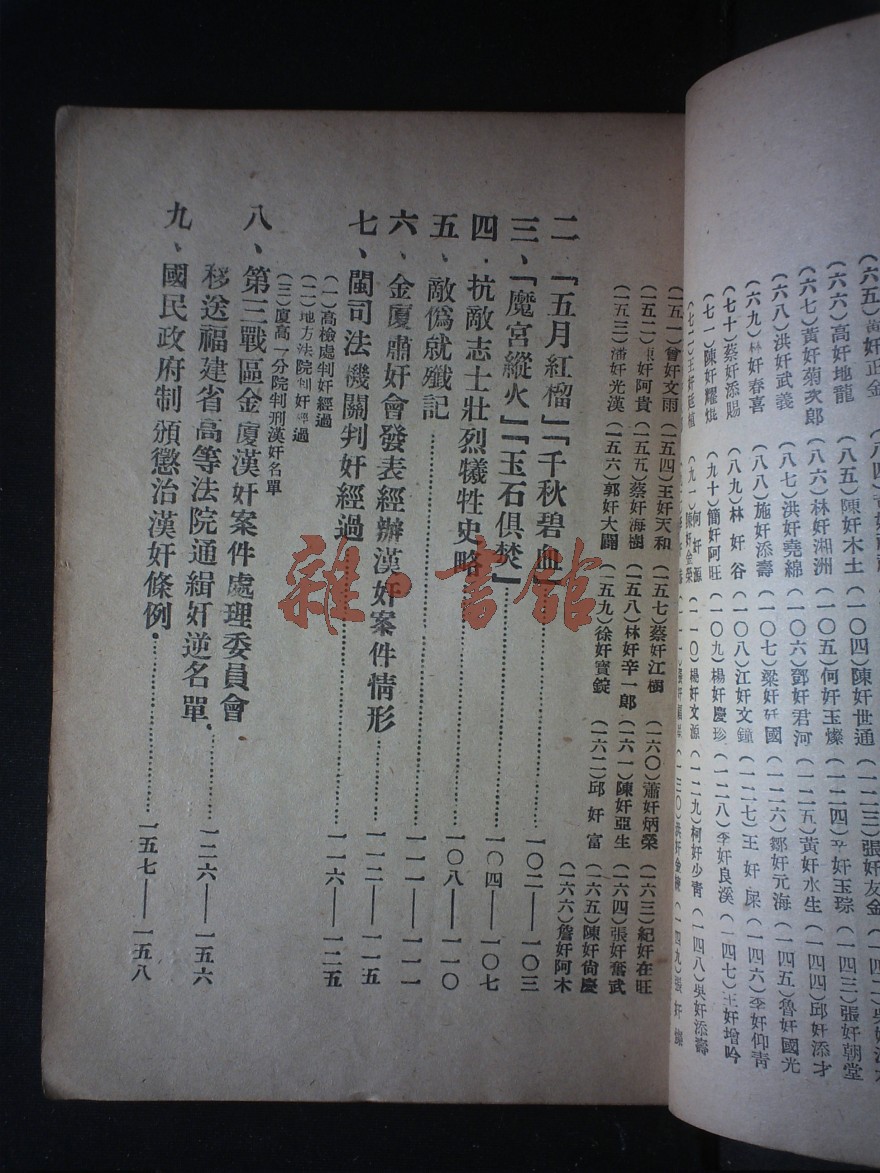 (六六)高奸地龍 (八五)陳奸木土 (一〇四)陳奸世通
(六七)黃奸菊次郎 (八六)林奸湘洲 (一〇五)何奸玉燦 (一二四)辛奸玉琮 (一四三)張奸朝堂
(六八)洪奸武義 (八七)洪奸堯綿 (一〇六)鄧奸君河 (一二五)黃奸水生 (一四四)邱奸添才
(六九)林奸春喜 (八八)施奸添壽 (一〇七)梁奸 國 (一二六)鄒奸元海 (一四五)魯奸國光
(七十)蔡奸添賜 (八九)林奸谷 (一〇八)江奸文鐘 (一二七)王奸屎 (一四六)李奸仰青
(七一)陳奸耀焜 (九十)簡奸阿旺 (一〇九)楊奸慶珍 (一二八)李奸良溪 (一四七)王奸增吟
(九一)何奸源 (一一〇)楊奸文源 (一二九)柯奸少青 (一四八)吳奸添壽
(一五一)曾奸文雨 (一五四)王奸天和 (一五七)蔡奸江樹 (一六〇)蕭奸炳榮 (一六三)紀奸在旺
(一五二)陳奸阿貴 (一五五)蔡奸海樹 (一五八)林奸辛一郎 (一六一)陳奸亞生 (一六四)張奸奮武
(一五三)潘奸光漢 (一五六)郭奸大闢 (一五九)徐奸寶錠 (一六二)邱奸富 (一六五)陳奸尙慶
(一六六)詹奸阿木
二 「五月紅榴」「千秋碧血」
三、「魔宮縱火」「玉石俱焚」……一〇二——一〇三
四.抗敵志士壯烈犧牲史略……一〇四——一〇七
五、敵僞就殲記……一〇八——一一〇
六、金廈肅奸會發表經辦漢奸案件情形……一一一——一一一
七、閩司法機關判奸經過……一一二——一一五
(一)高檢處判奸經過
(二)地方法院判奸經過
(三)廈高一分院判刑漢奸名單……一一六——一二五
八、第三戰區金廈漢奸案件處理委員會
移送福建省高等法院通緝奸逆名單……一二六——一五六
九、國民政府制頒懲治漢奸條例……一五七——一五八
雜·書館